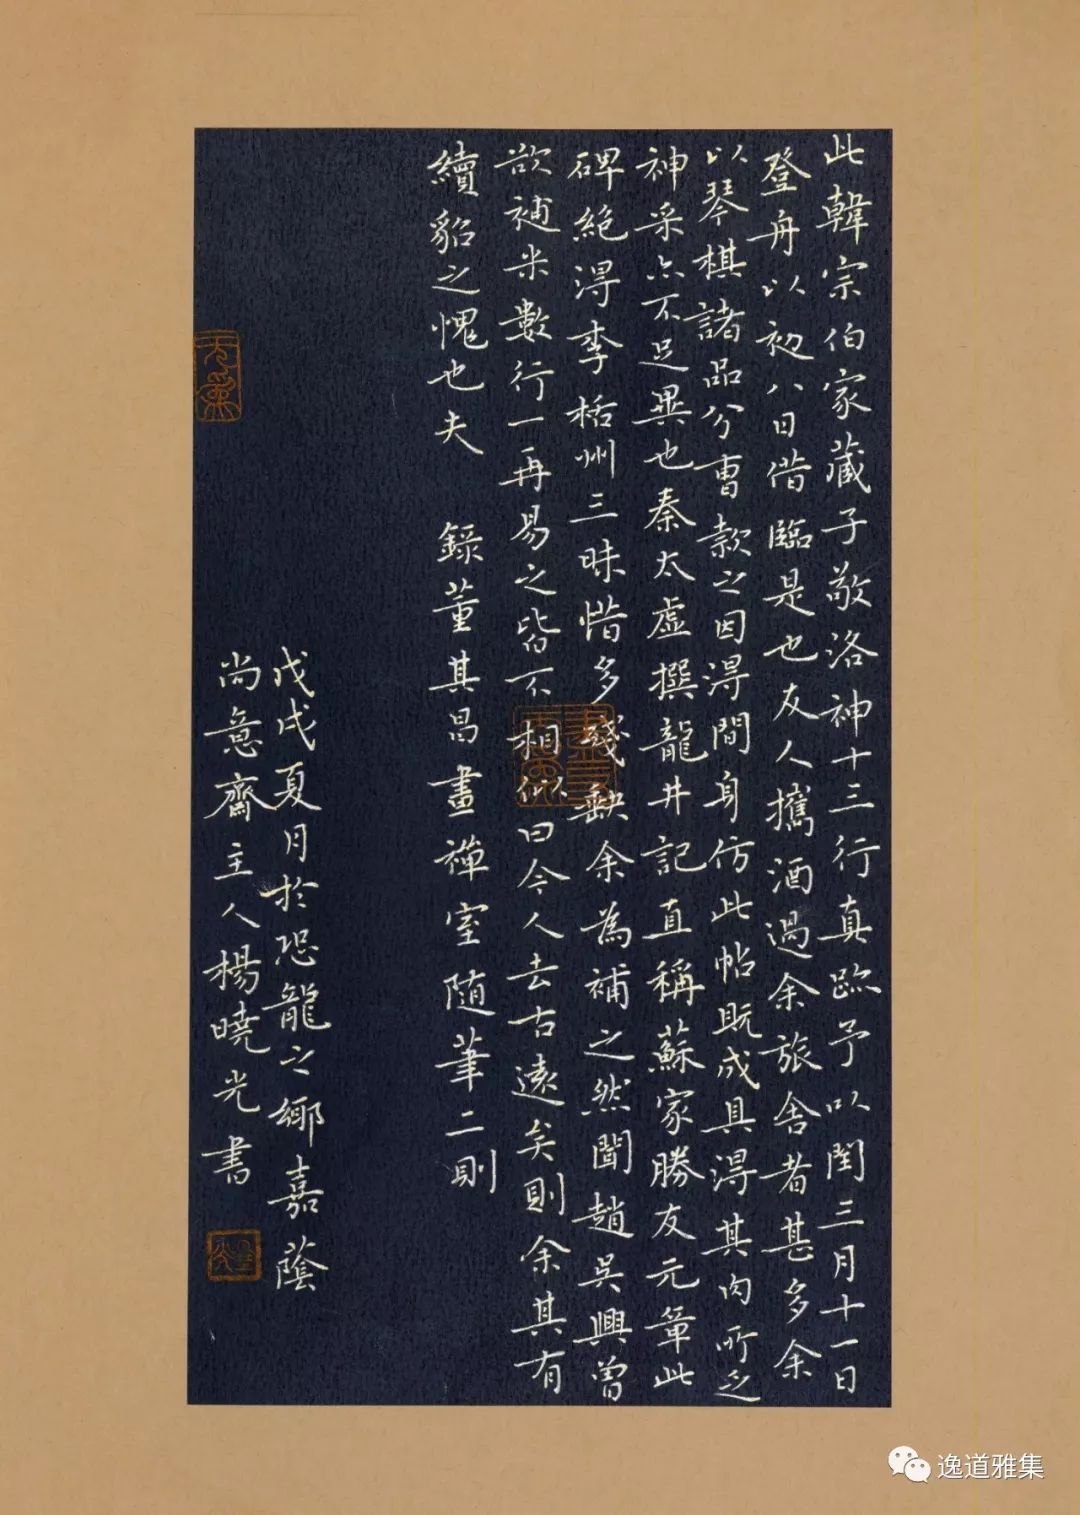 此韓宗伯家藏子敬洛神十三行真跡予以閏三月十一日
登舟以初八日借臨是也友人攜酒過余旅舍者甚多余
以琴棋諸品分曹款之因得閒身仿此帖既成具得其肉所乏
神采亦不足異也秦太虛撰龍井記直稱蘇家勝友元章此
碑絶得李栝州三昧惜多殘缺余為補之然聞趙吳興曾
欲補米數行一再易之皆不相似曰今人去古遠矣則余其有
續貂之愧也夫 錄董其昌畫禪室隨筆二則
戊戌夏月於恐龍之鄉嘉蔭
尚意齋主人楊曉光書
逸道雅集